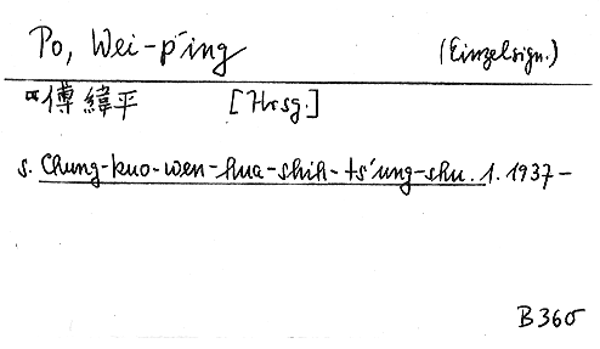 Po, Wei-p'ing (Einzelsign.)
傅緯平 [Hrsg.]
s. Chung-kuo-wen-hua-shih-ts'ung-shu. 1. 1937-
B 360